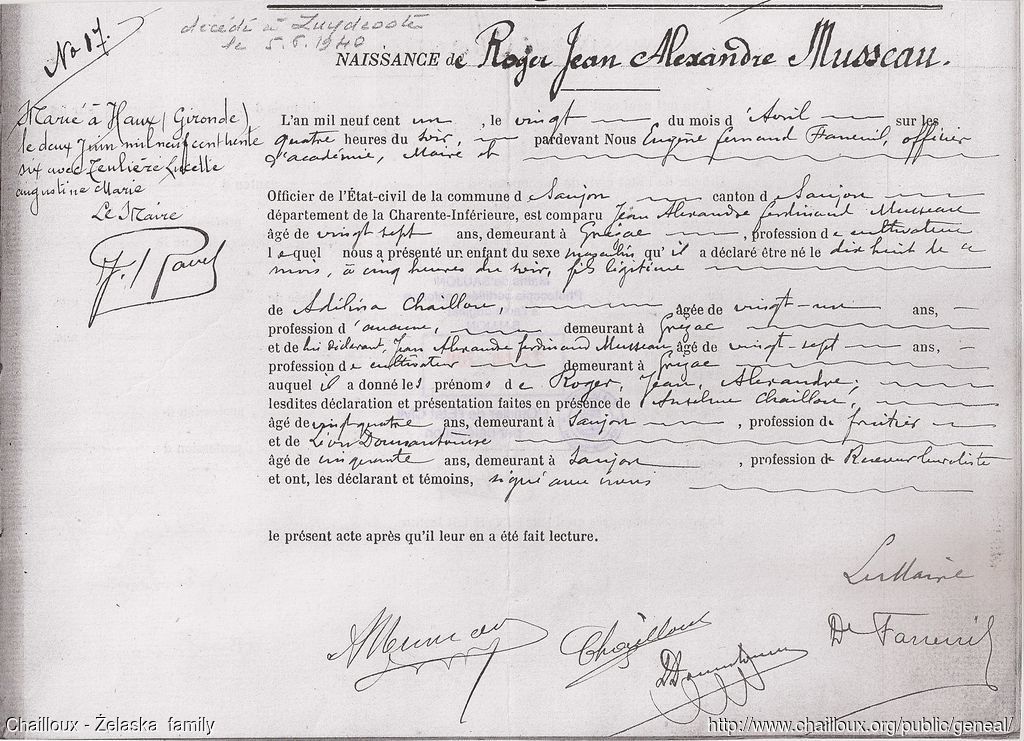 No 17.
décédé à Zuydcoote
le 5.6.1940
NAISSANCE de Roger Jean Alexandre Musseau.
Marié à Haux (Gironde)
le deux Juin mil neuf cent trente
six avec Teulière Lucette
augustine Marie
Le Maire
L'an mil neuf cent un, le vingt du mois d'Avril sur les
quatre heures du soir, pardevant Nous Eugène Fernand Faneuil, officier
d'académie, Maire et
Officier de l'État-civil de la commune d Saujon canton d Saujon
département de la Charente-Inférieure, est comparu Jean Alexandre ferdinand Musseau
âgé de vingt sept ans, demeurant à Grézac, profession de cultivateur
lequel nous a présenté un enfant du sexe masculin qu'il a déclaré être né le dix huit de ce
mois, à cinq heures du soir, fils légitime
de Adélina Chailloux, âgée de vingt-un ans,
profession d'aucune, demeurant à Grézac
et de lui déclarant, Jean Alexandre ferdinand Musseau âgé de vingt-sept ans,
profession de cultivateur demeurant à Grézac
auquel il a donné les prénoms de Roger, Jean, Alexandre,
lesdites déclaration et présentation faites en présence de Anselme Chailloux,
âgé de vingt quatre ans, demeurant à Saujon, profession de fruitier
et de Léon
âgé de cinquante ans, demeurant à Saujon, profession de Receveur buraliste
et ont, les déclarant et témoins, signé avec nous
le présent acte après qu'il leur en a été fait lecture.
Le Maire
AMusseau
Chailloux
Dr Faneuil
Chailloux - Želaska family
http://www.chailloux.org/public/geneal/